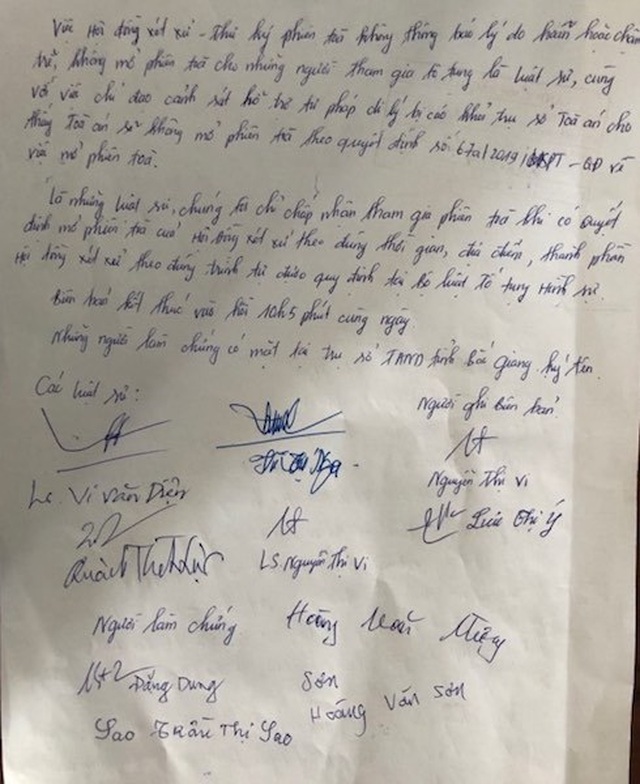 Việc Hội đồng xét xử - Thư ký phiên toà không thông báo lý do hoãn hoặc chậm
trễ, không mở phiên toà cho những người tham gia tố tụng là luật sư, cùng
với việc chỉ đạo cảnh sát hỗ trợ tư pháp di lý bị cáo khỏi trụ sở Toà án cho
thấy Toà án sẽ không mở phiên toà theo quyết định số 67a/2019/ - QĐ về
việc mở phiên toà.
Là những luật sư, chúng tôi chỉ chấp nhận tham gia phiên toà khi có quyết
định mở phiên toà của Hội đồng xét xử theo đúng thời gian, địa điểm, thành phần
Hội đồng xét xử theo đúng trình tự được quy định tại Bộ luật Tố tụng Hình sự.
Biên bản kết thúc vào hồi 10h5 phút cùng ngày.
Những người làm chứng có mặt tại trụ sở TAND tỉnh Bắc Giang ký tên.
Các luật sư:
Người ghi biên bản
Nguyễn Thị Vi
Ls. Vi Văn Diện
Lưu Thị Ý
Quách Thành Lực
LS. Nguyễn Thị Vi
Người làm chứng
Hoàng
Đặng Dung
Sơn
Hoàng Văn Sơn
Sao Trần Thị Sao